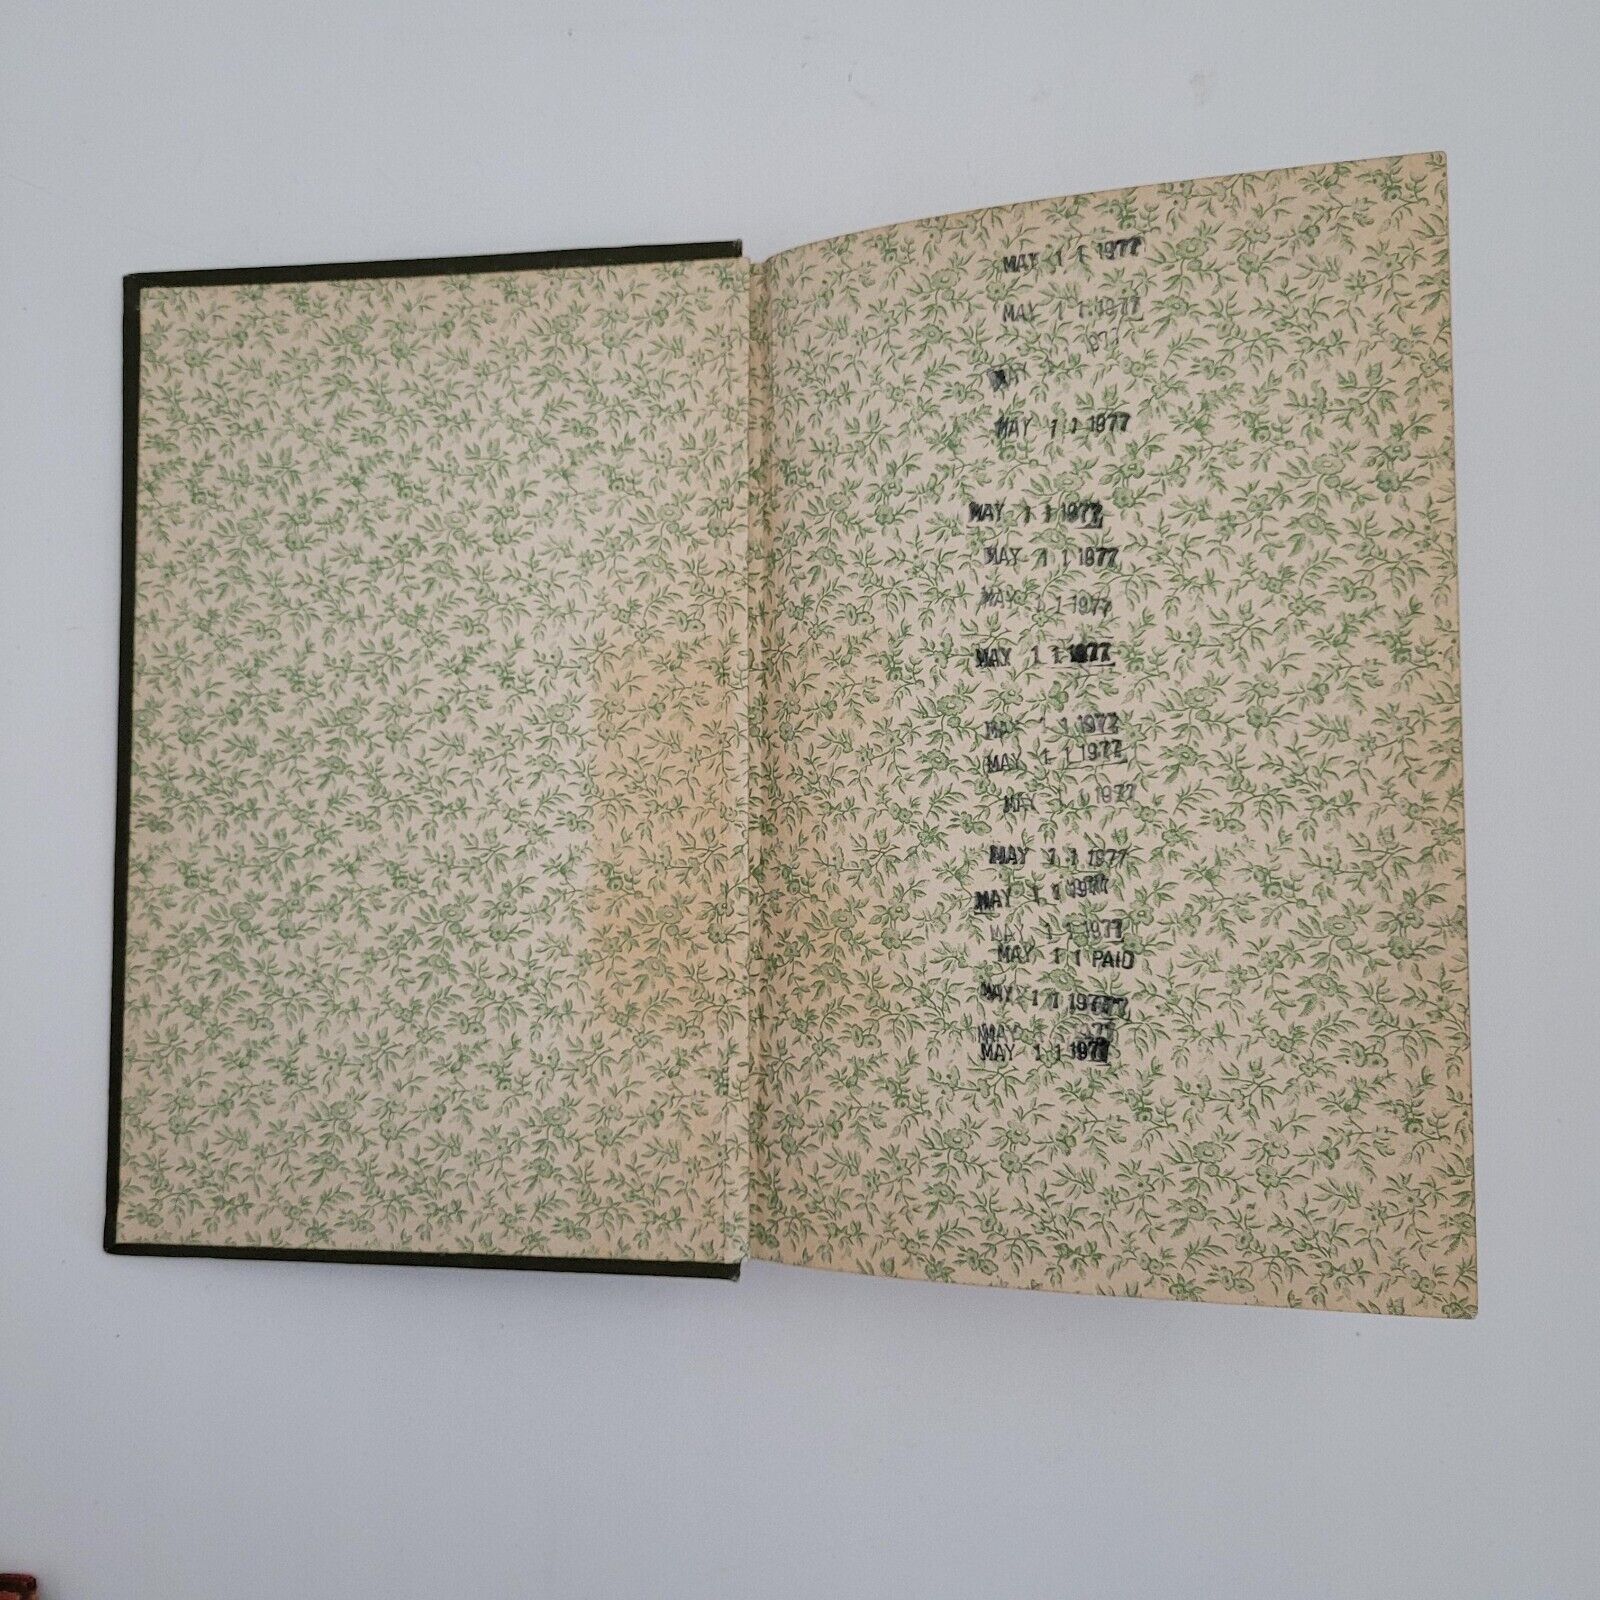 MAY 1 1 1977
MAY 1 1 1977
977
MAY
MAY 1 1 1977
MAY 1 1 1977
MAY 1 1 1977
MAY 1 1 1977
MAY 1 1 1977
MAY 1 1 1977
MAY 1 1 1977
MAY 1 1 1977
MAY 1 1 1977
MAY 1 1 1977
MAY 1 1 1977
MAY 1 1 PAID
MAY 1 1 1977
MAY 1 1977
MAY 1 1 1977